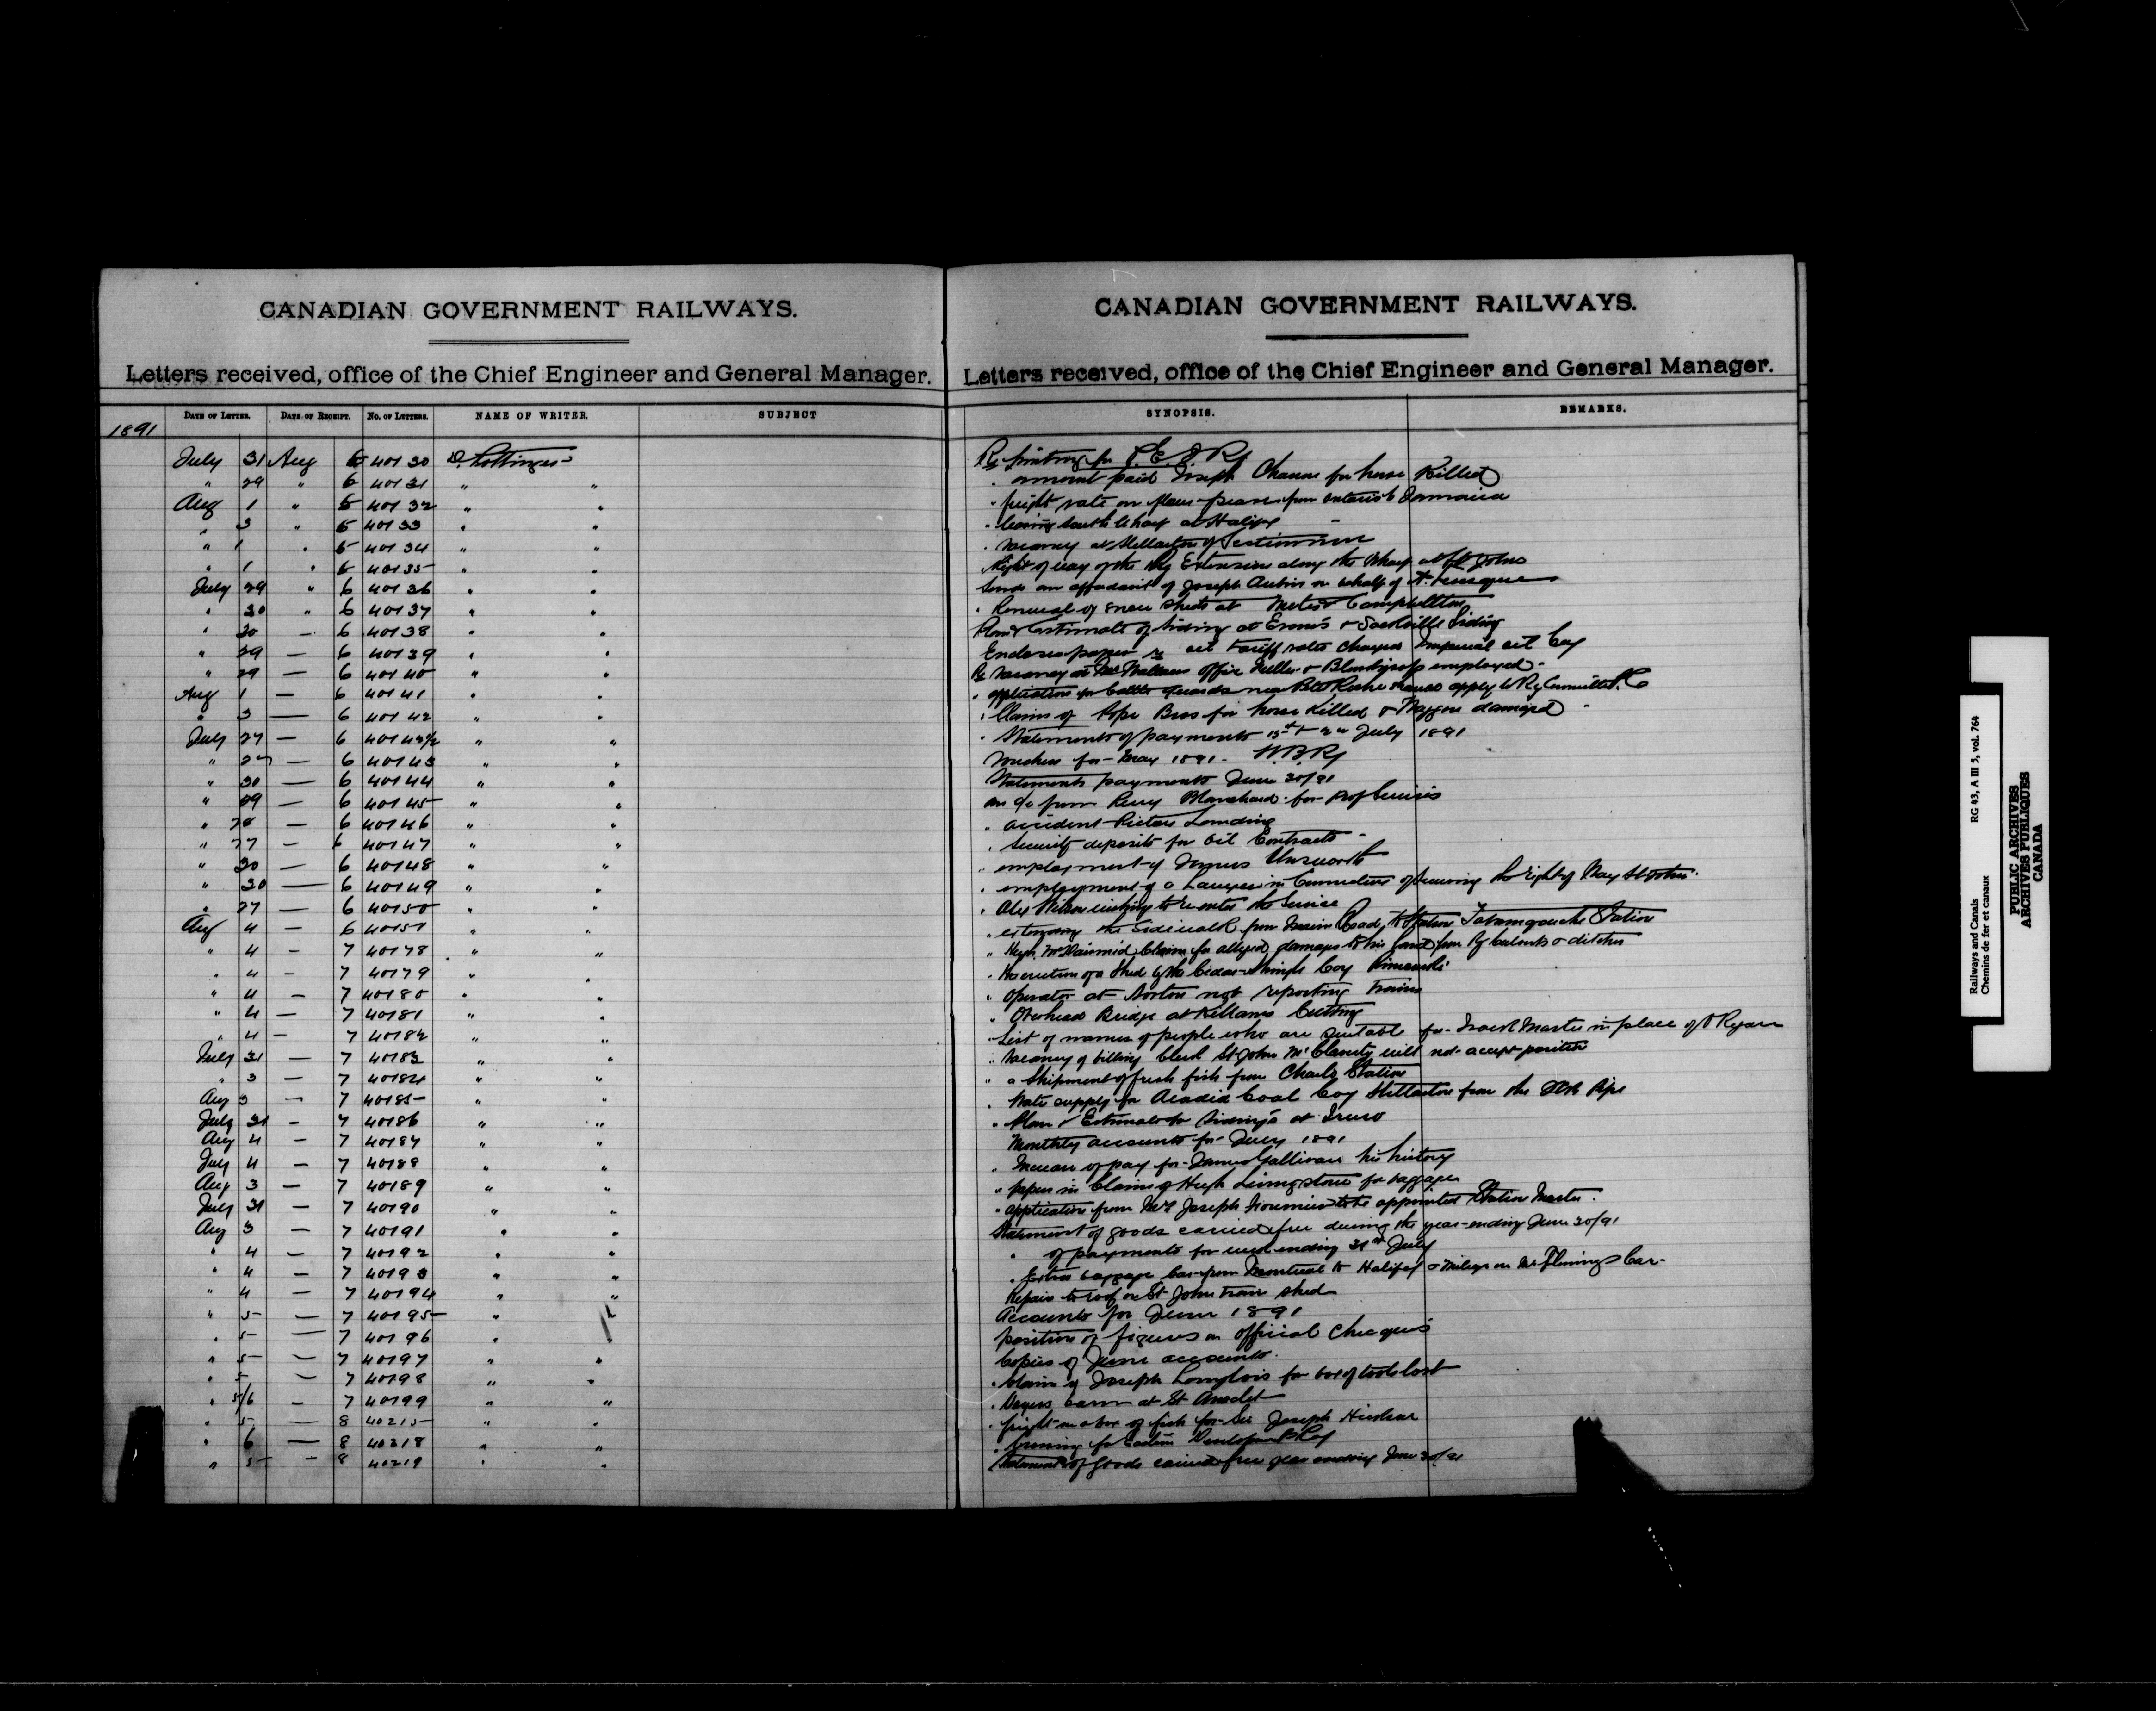 CANADIAN GOVERNMENT RAILWAYS.
Letters received, office of the Chief Engineer and General Manager.
DATE OF LETTER. DATE OF RECEIPT. NO. OF LETTERS. NAME OF WRITER. SUBJECT
1891
CANADIAN GOVERNMENT RAILWAYS.
Letters received, office of the Chief Engineer and General Manager.
SYNOPSIS. REMARKS.
July 31 Aug 5 40130 D. Pottinger Re printing for P.E.I.Ry
" 29 " 6 40131 " " " amount paid Joseph for horse Killed
Aug 1 " 5 40132 " " " freight rate on from Ontario to Jamaica
" 3 " 5 40133 " " " leasing South Wharf at Halifax
" 1 " 5 40134 " " " vacancy at Stellarton of
" 1 " 5 40135 " " Right of way of the Ry Extension along the Wharf at St John
July 29 " 6 40136 " " Sends an affadavit of Joseph Aubin on behalf of
" 30 " 6 40137 " " " Renewal of snow sheds at Metis & Campbellton
" 30 - 6 40138 " " Plan & Estimate of Siding at Evans & Sackville Siding
" 29 - 6 40139 " " Encloses papers re oil tariff rates charged Imperial oil Coy
" 29 - 6 40140 " " Re Vacancy at Mr Wallaces Office employed
Aug 1 - 6 40141 " " application for Cattle Guards near apply to Ry Committee P.C
" 3 - 6 40142 " " " Claims of Pope Bros for horse Killed & Waggon damaged
July 27 - 6 40142½ " " " Statements of payments July 1891
" 27 - 6 40143 " " Vouchers for May 1891. W.B.Ry
" 30 - 6 40144 " " Statements payments June 30/91
" 29 - 6 40145 " " an a/c from Percy Blanchard for Prof Services
" - 6 40146 " " " accident Pictou Landing
" 27 - 6 40147 " " " Security deposits for oil Contracts
" 30 - 6 40148 " " " employment of James Unsworth
" 30 - 6 40149 " " " employment of a Lawyer in Connection of securing the right of Way St John
" 27 - 6 40150 " " " Alex Wilson wishing to re enter the Service
Aug 4 - 6 40151 " " " extending the Sidewalk from Main Road to Station Tatamagouche Station
" 4 - 7 40178 " " " Hugh McDairmid Claim for alleged damages to his land from Ry Culverts & ditches
" 4 - 7 40179 " " " the erection of a Shed by the Cedar Shingle Coy Rimouski
" 4 - 7 40180 " " " operator at Norton not reporting trains
" 4 - 7 40181 " " " Overhead Bridge at Killams Cutting
" 4 - 7 40182 " " List of names of people who are suitable for Track Master in place of Ryan
July 31 - 7 40183 " " " Vacancy of billing Clerk St John McClanity will not accept position
" 3 - 7 40184 " " " a Shipment of fresh fish from Charlo Station
Aug 3 - 7 40185 " " " Water supply for Acadia Coal Coy Stellarton from the ICR Pipe
July 31 - 7 40186 " " " Plan & Estimate for Sidings at Truro
Aug 4 - 7 40187 " " Monthly accounts for July 1891
July 4 - 7 40188 " " " Increase of pay for James Gallivan his history
Aug 3 - 7 40189 " " " papers in Claim of Hugh Livingstone for baggage
July 31 - 7 40190 " " " application from Mr Joseph Fournier to be appointed Station Master
Aug 3 - 7 40191 " " Statement of goods carried free during the year ending June 30/91
" 4 - 7 40192 " " " of payments for week ending 31st July
" 4 - 7 40193 " " " Extra baggage Car from Montreal to Halifax & Mileage on Mr Flemings Car
" 4 - 7 40194 " " Repairs to roof on St John train shed
" 5 - 7 40195 " " Accounts for June 1891
" 5 - 7 40196 " " position of figures on official Cheques
" 5 - 7 40197 " " Copies of June accounts.
" 5 - 7 40198 " " " Claim of Joseph Langlois for box of tools lost
" 5/6 - 7 40199 " " " barn at St Anaclet
" 5 - 8 40215 " " " freight on a box of fish for Sir Joseph Hickson
" 6 - 8 40218 " " " for Eastern Development Coy
" 5 - 8 40219 " " Statement of goods carried free year ending June 30/91
Railways and Canals RG 43, A III 5, vol. 764
Chemins de fer et canaux
PUBLIC ARCHIVES
ARCHIVES PUBLIQUES
CANADA